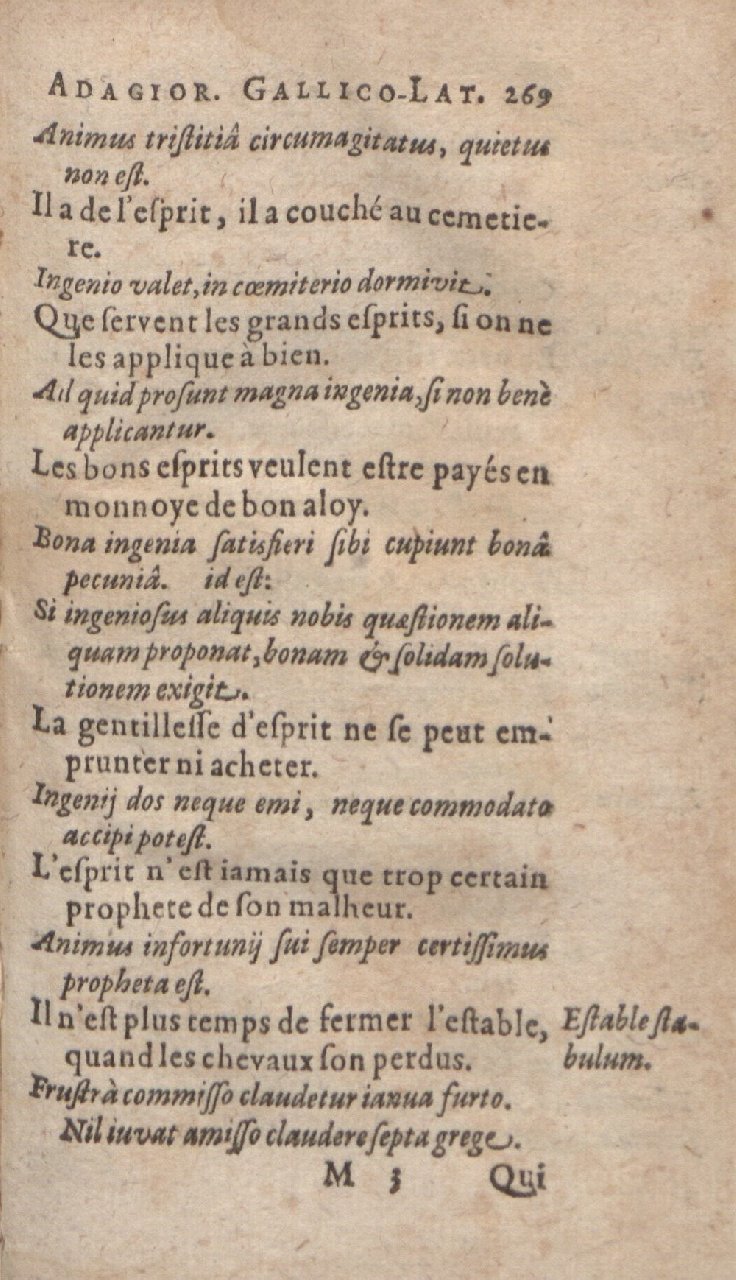 ADAGIOR. GALLICO-LAT. 269
Animus tristitiâ circumagitatus, quietus
non est.
Il a de l'esprit, il a couché au cemetie-
re.
Ingenio valet, in cœmiterio dormivit.
Que servent les grands esprits, si on ne
les applique à bien.
Ad quid prosunt magna ingenia, si non benè
applicantur.
Les bons esprits veulent estre payés en
monnoye de bon aloy.
Bona ingenia satisfieri sibi cupiunt bonâ
pecuniâ. id est:
Si ingeniosus aliquis nobis quæstionem ali-
quam proponat, bonam & solidam solu-
tionem exigit.
La gentillesse d'esprit ne se peut em-
prunter ni acheter.
Ingenij dos neque emi, neque commodato
accipi potest.
L'esprit n'est iamais que trop certain
prophete de son malheur.
Animus infortunij sui semper certissimus
propheta est.
Il n'est plus temps de fermer l'estable, Estable sta-
quand les chevaux son perdus. bulum.
Frustrà commisso claudetur ianua furto.
Nil iuvat amisso claudere septa grege.
M 3 Qui